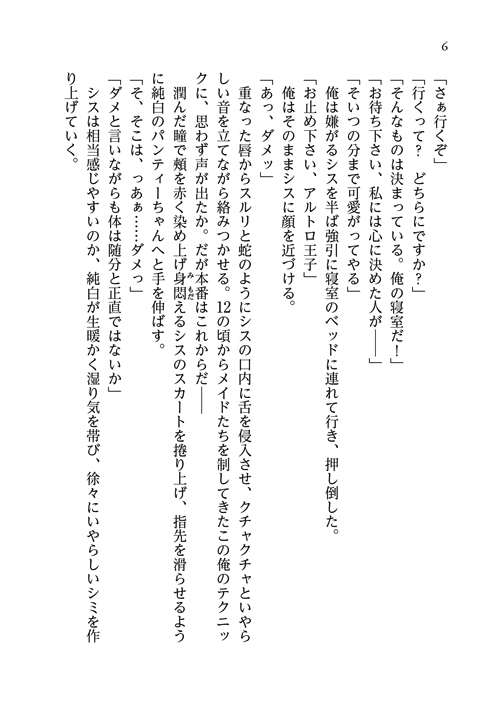 6
「さぁ行くぞ」
「行くって？　どちらにですか？」
「そんなものは決まっている。俺の寝室だ！」
「お待ち下さい、私には心に決めた人が――」
「そいつの分まで可愛がってやる」
　俺は嫌がるシスを半ば強引に寝室のベッドに連れて行き、押し倒した。
「お止め下さい、アルトロ王子」
　俺はそのままシスに顔を近づける。
「あっ、ダメッ」
　重なった唇からスルリと蛇のようにシスの口内に舌を侵入させ、クチャクチャといやら
しい音を立てながら絡みつかせる。12の頃からメイドたちを制してきたこの俺のテクニッ
クに、思わず声が出たか。だが本番はこれからだ――
　潤んだ瞳で頬を赤く染め上げ身悶えるシスのスカートを捲り上げ、指先を滑らせるよう
みだ
に純白のパンティーちゃんへと手を伸ばす。
「そ、そこは、っあぁ……ダメっ」
「ダメと言いながらも体は随分と正直ではないか」
　シスは相当感じやすいのか、純白が生暖かく湿り気を帯び、徐々にいやらしいシミを作
り上げていく。